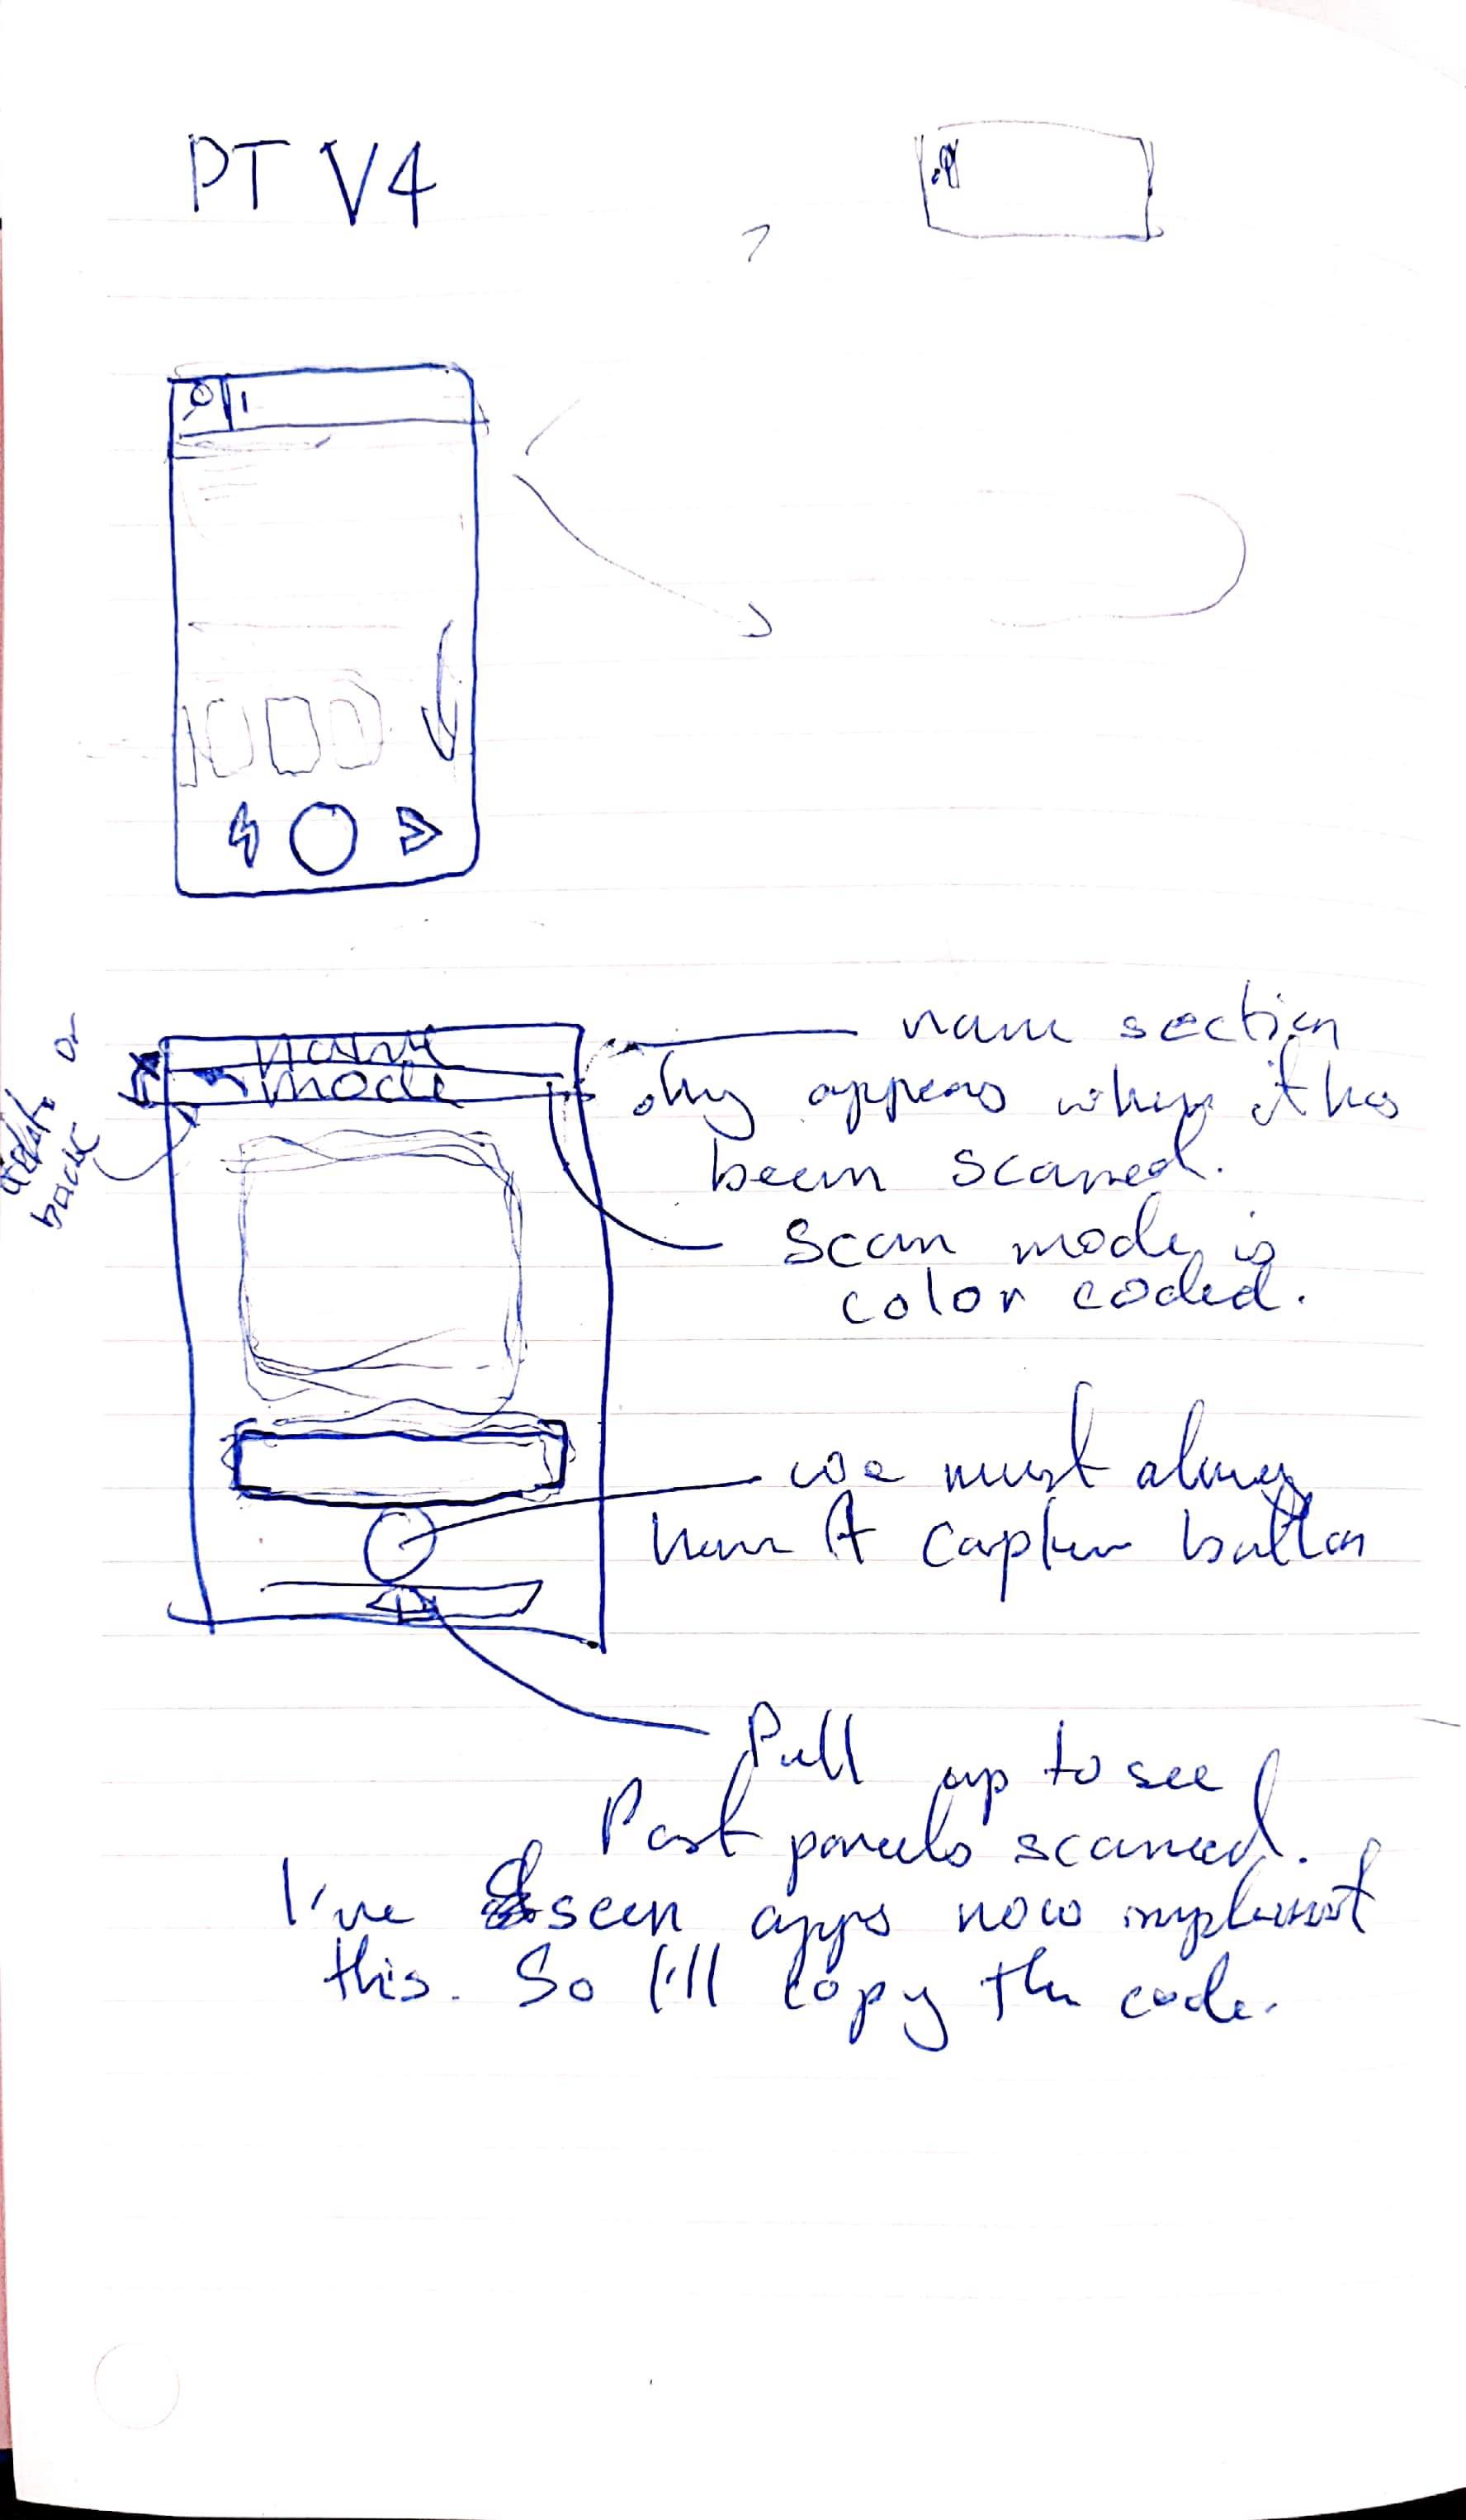 PT V4
name section
only appears when it has
been scanned.
name
mode
back
scan mode is
color coded.
we must always
have A capture button
Pull up to see
Past panels scanned.
I've seen apps now implement
this. So I'll copy the code.